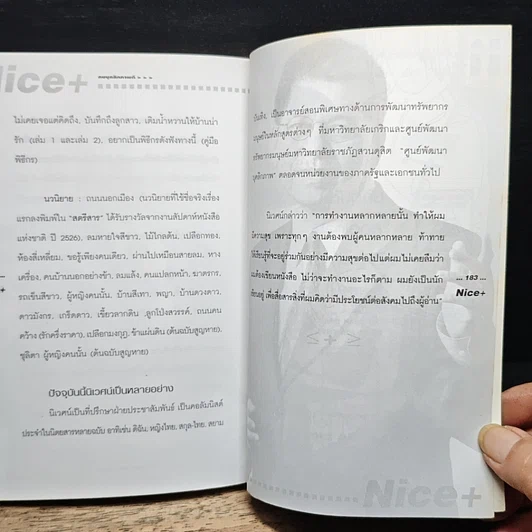 Nice+
ไม่เคยเจอแต่คิดถึง, บันทึกถึงลูกสาว, เติมน้ำหวานให้บ้านน่า
รัก (เล่ม 1 และเล่ม 2), อยากเป็นพิธีกรดังฟังทางนี้ (คู่มือ
พิธีกร)
นวนิยาย : ถนนนอกเมือง (นวนิยายที่ใช้ชื่อจริงเรื่อง
แรกลงพิมพ์ใน "สตรีสาร" ได้รับรางวัลจากงานสัปดาห์หนังสือ
แห่งชาติ ปี 2526), ลมหายใจสีขาว, ไม้ใกล้ดิน, เปลือกทอง,
ห้องสี่เหลี่ยม, ขอรู้เพียงคนเดียว, ผ่านไปเหมือนสายลม, หาง
เครื่อง, คนบ้านนอกอย่างข้า, ลมแล้ง, คนแปลกหน้า, ฆาตกร,
รถเข็นสีขาว, ผู้หญิงคนนั้น, บ้านสีเทา, พญา, บ้านดวงดาว,
ดาวมังกร, เกร็ดดาว, เขี้ยวลากดิน ,ลูกโป่งสวรรค์, ถนนคด
คว้าง (รักครึ่งราคา), เปลือกมงกุฎ, ข้าแผ่นดิน (ต้นฉบับสูญหาย),
ชุลิตา ผู้หญิงคนนั้น (ต้นฉบับสูญหาย)
ปัจจุบันนี้นิเวศน์เป็นหลายอย่าง
นิเวศน์เป็นที่ปรึกษาฝ่ายประชาสัมพันธ์ เป็นคอลัมนิสต์
ประจำในนิตยสารหลายฉบับ อาทิเช่น ดิฉัน, หญิงไทย, สกุล-ไทย, สยาม
บันเทิง, เป็นอาจารย์สอนพิเศษทางด้านการพัฒนาทรัพยากร
มนุษย์ในหลักสูตรต่างๆ ที่มหาวิทยาลัยเกริกและศูนย์พัฒนา
ทรัพยากรมนุษย์มหาวิทยาลัยราชภัฏสวนดุสิต "ศูนย์พัฒนา
บุคลิกภาพ" ตลอดจนหน่วยงานของภาครัฐและเอกชนทั่วไป
นิเวศน์กล่าวว่า "การทำงานหลากหลายนั้น ทำให้ผม
มีความสุข เพราะทุกๆ งานต้องพบผู้คนหลากหลาย ท้าทาย
ให้เรียนรู้ที่จะอยู่ร่วมกันอย่างมีความสุขต่อไปแต่ผมไม่เคยลืมว่า
จะต้องเขียนหนังสือ ไม่ว่าจะทำงานอะไรก็ตาม ผมยังเป็นนัก
เขียนอยู่ เพื่อสื่อสารสิ่งที่ผมคิดว่ามีประโยชน์ต่อสังคมไปถึงผู้อ่าน"
... 183 ...
Nice+
≤+≥
Nice+